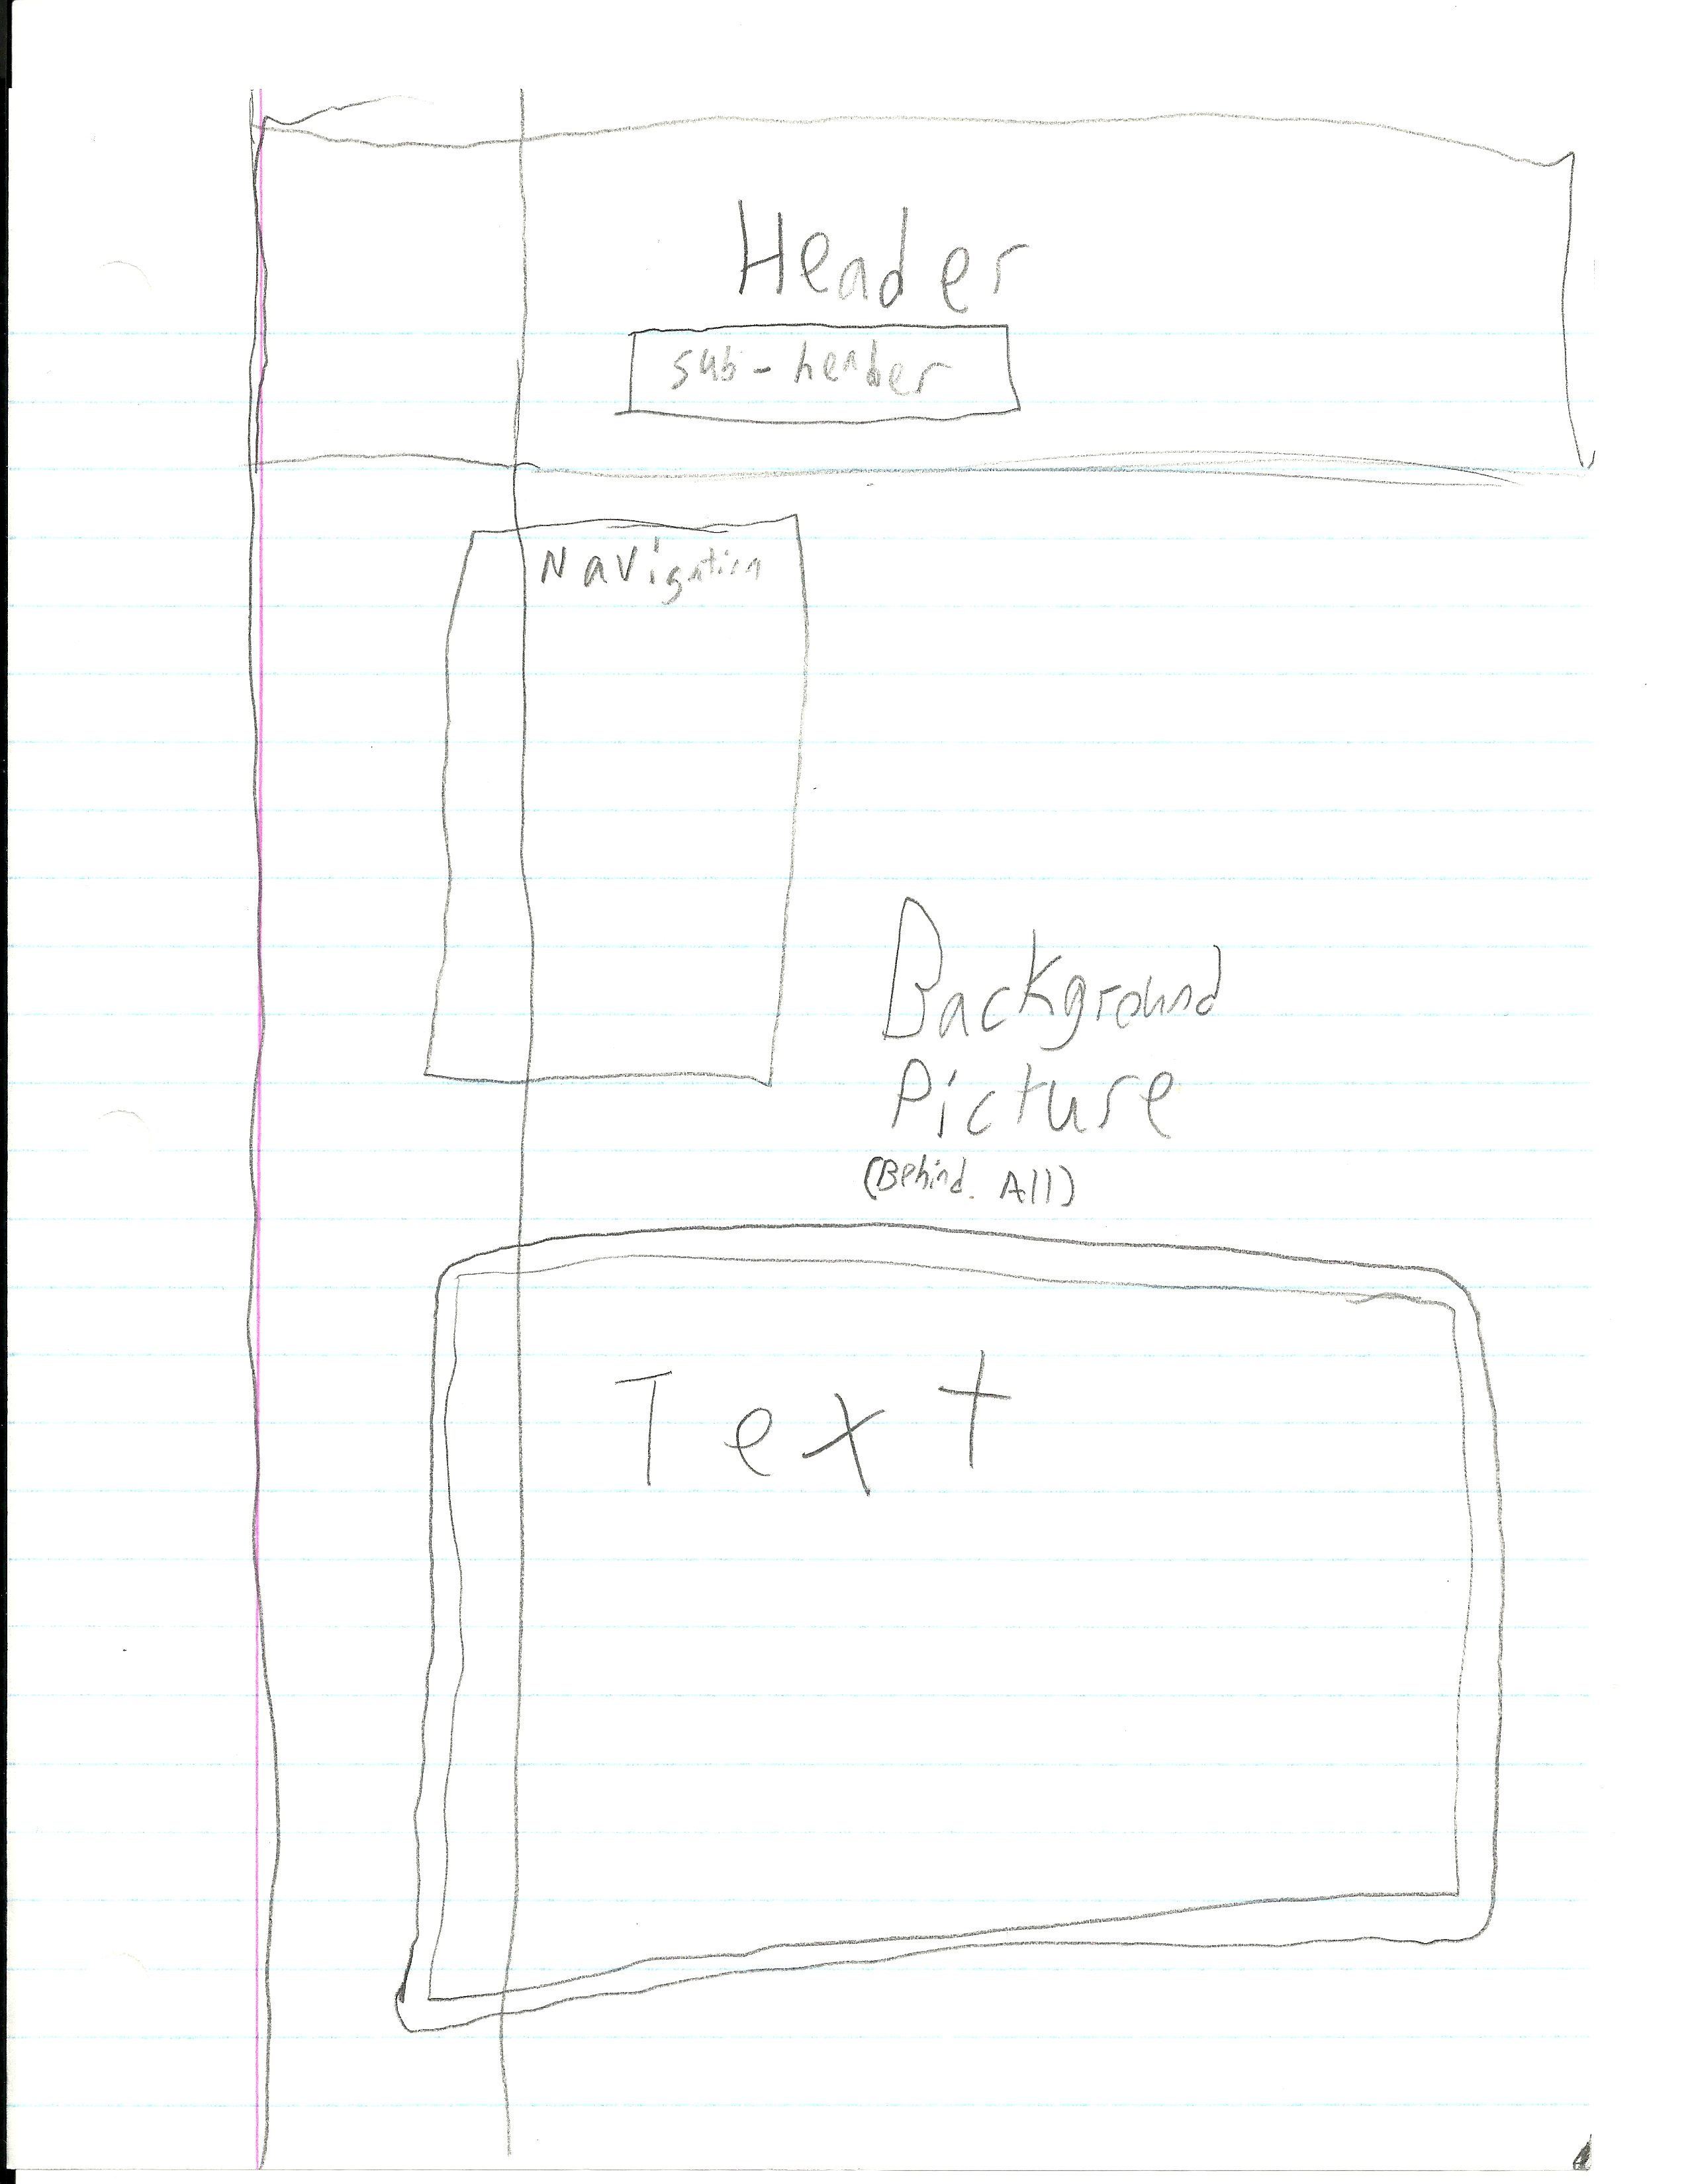 Header
sub-header
Navigation
Background
Picture
(Behind All)
Text